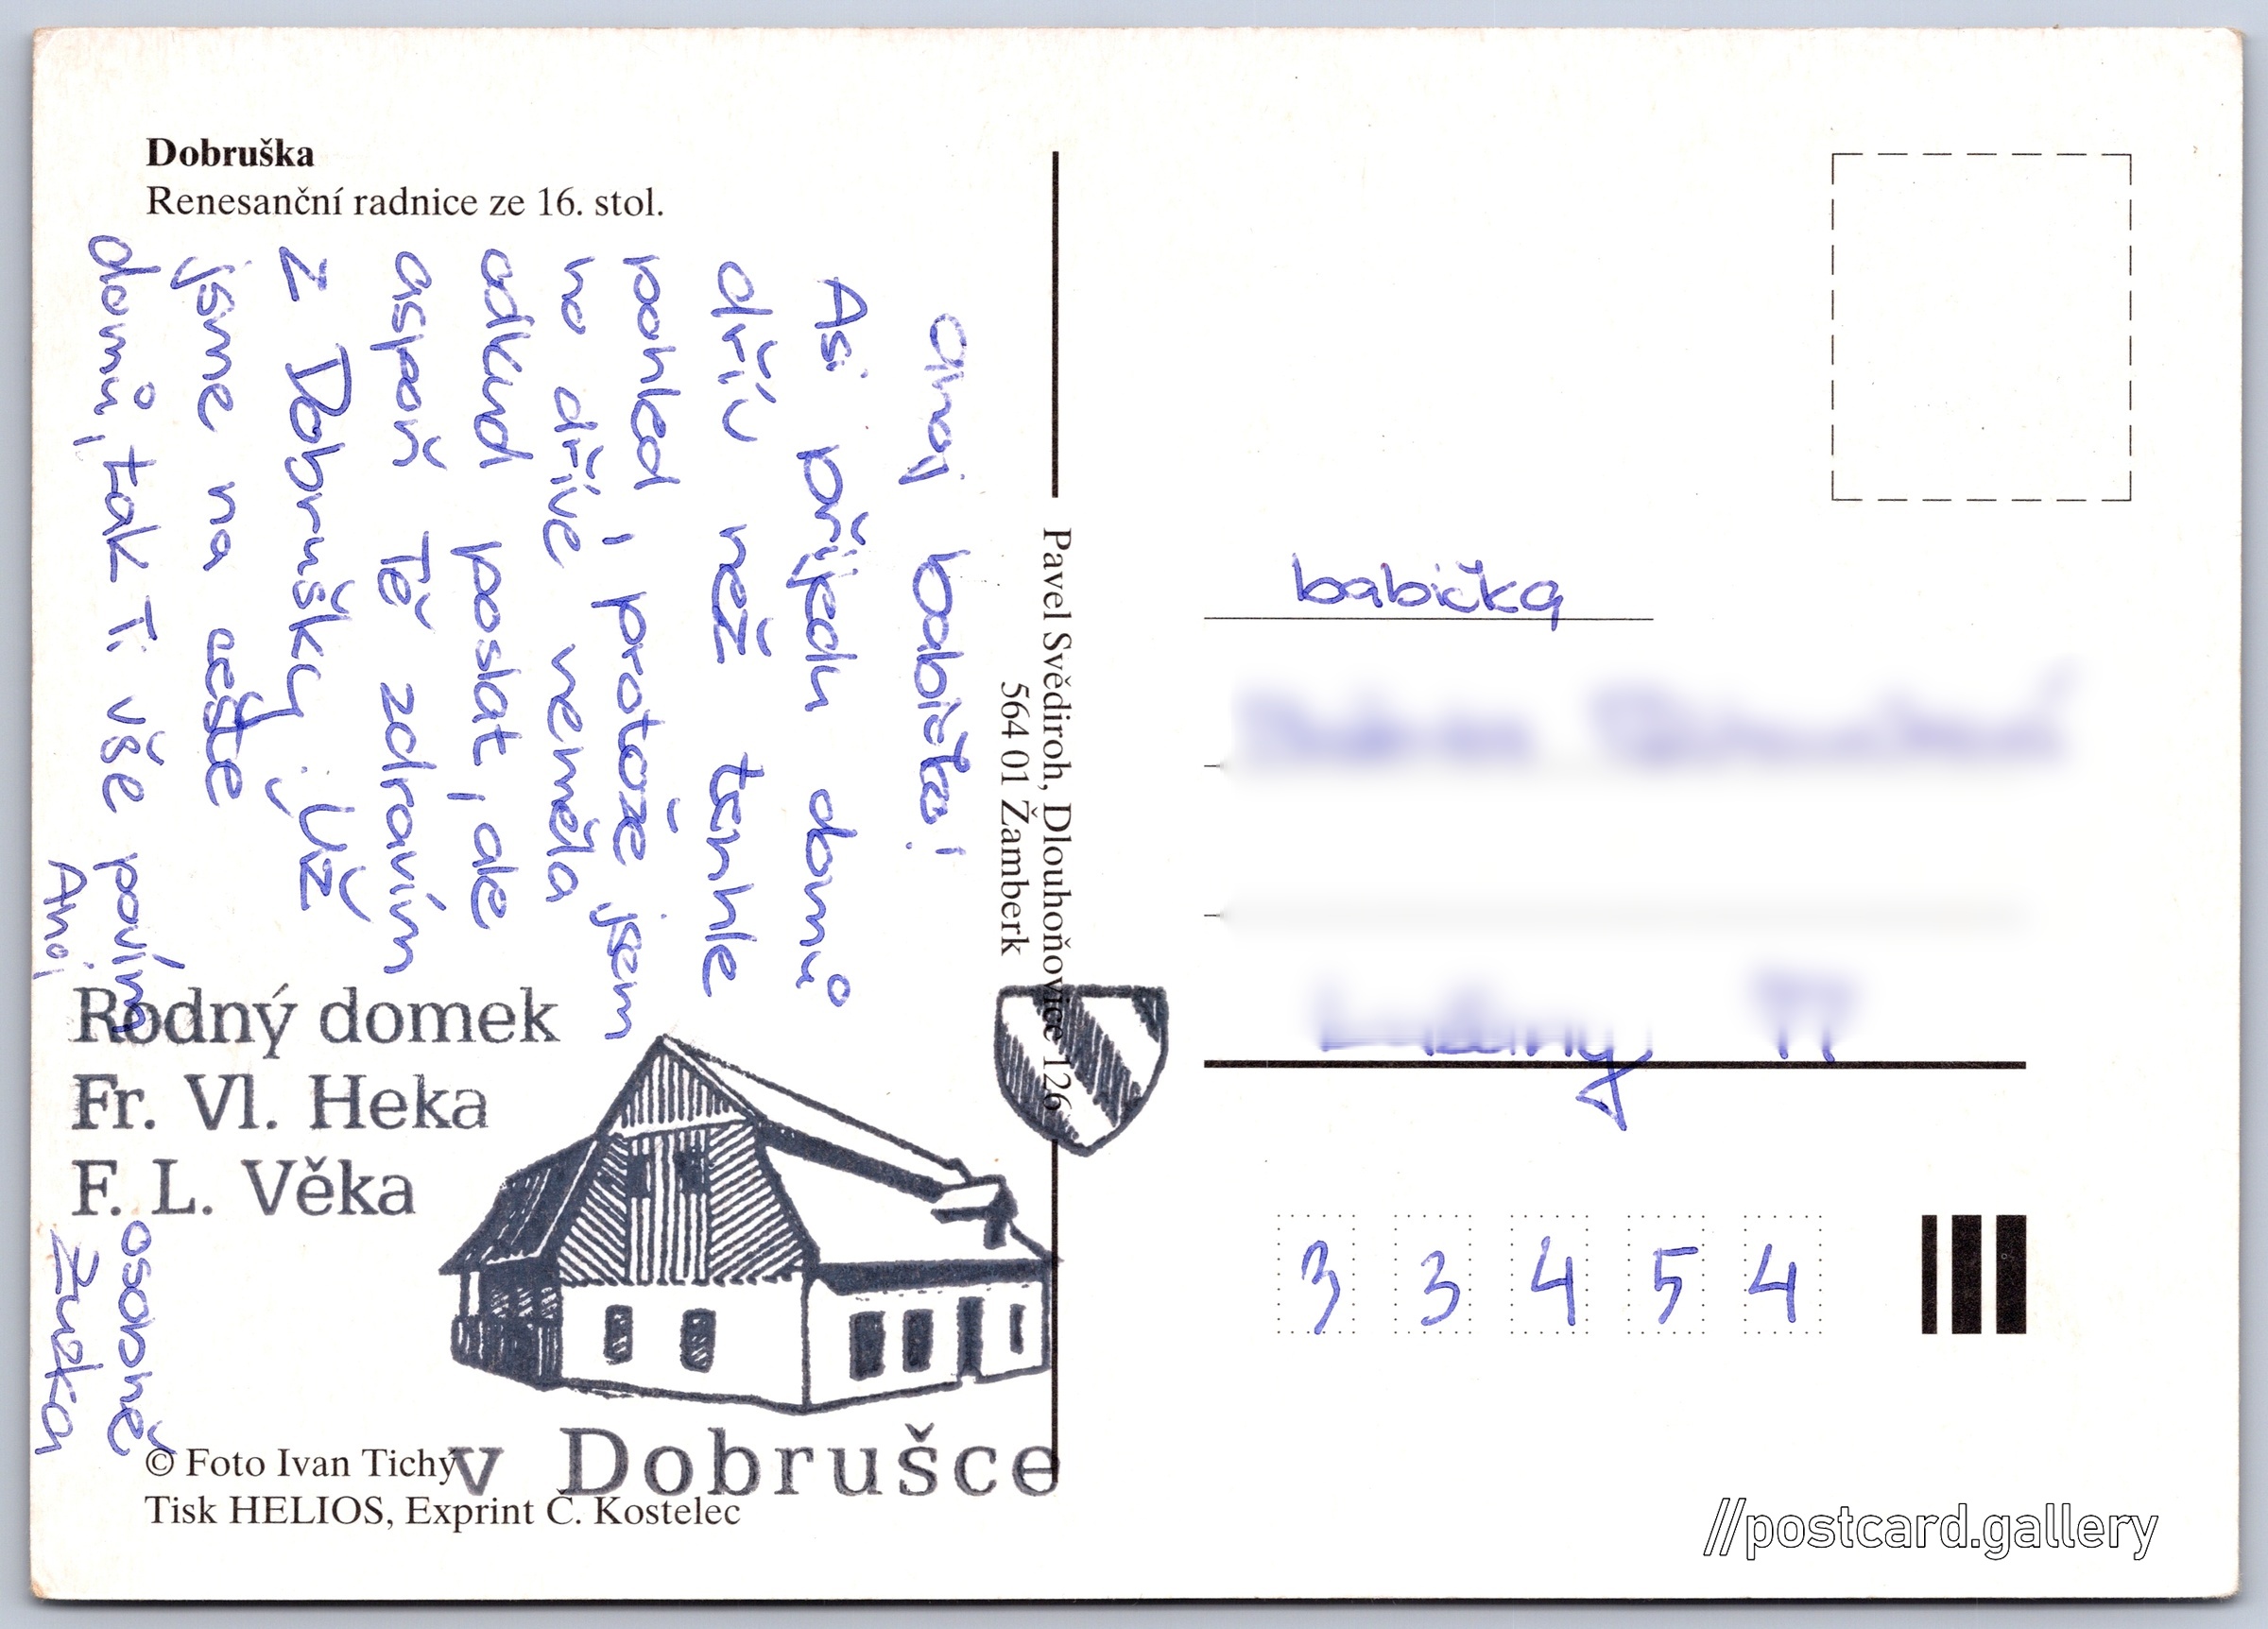 Dobruška
Renesanční radnice ze 16. stol.
ahoj babičko!
Asi přijedu domů
dřív než tenhle
pohled, protože jsem
ho dříve neměla
odkud poslat, ale
aspoň Tě zdravím
z Dobrušky. Už
jsme na cestě
domů, tak Ti vše povím osobně
Ahoj Zuzka
Rodný domek
Fr. Vl. Heka
F. L. Věka
v Dobrušce
© Foto Ivan Tichý
Tisk HELIOS, Exprint Č. Kostelec
Pavel Svědiroh, Dlouhoňovice 126
564 01 Žamberk
babička
33454
//postcard.gallery